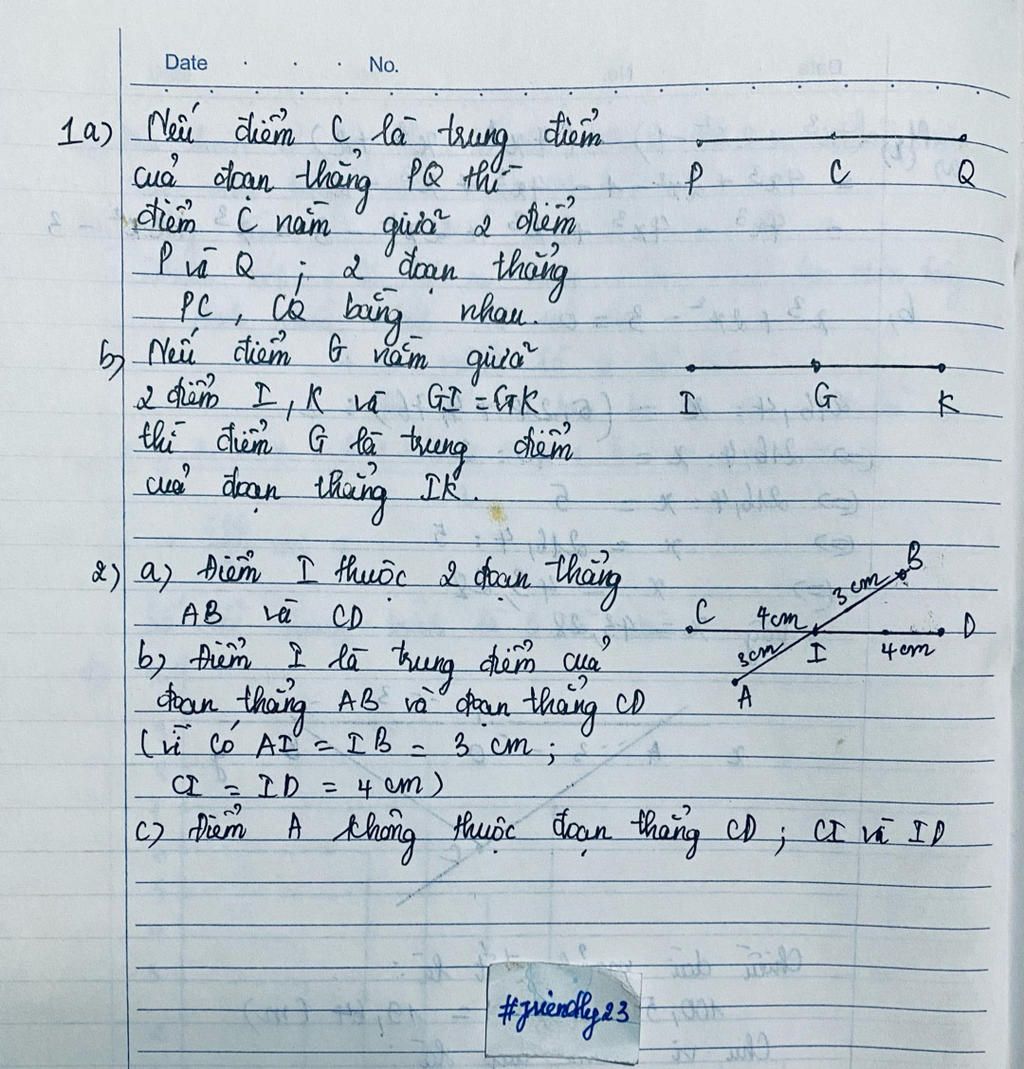 Date . . . No.
1a) Nếu điểm C là trung điểm
của đoạn thẳng PQ thì
điểm C nằm giữa 2 điểm
P và Q ; 2 đoạn thẳng
PC , CQ bằng nhau.
P C Q
b) Nếu điểm G nằm giữa
2 điểm I , K và GI = GK
thì điểm G là trung điểm
của đoạn thẳng IK.
I G K
2) a) Điểm I thuộc 2 đoạn thẳng
AB và CD
b) Điểm I là trung điểm của
đoạn thẳng AB và đoạn thẳng CD
(vì có AI = IB = 3 cm ;
CI = ID = 4 cm)
B
3cm
C 4cm D
3cm I 4cm
A
c) Điểm A không thuộc đoạn thẳng CD ; CI và ID
#friendly23